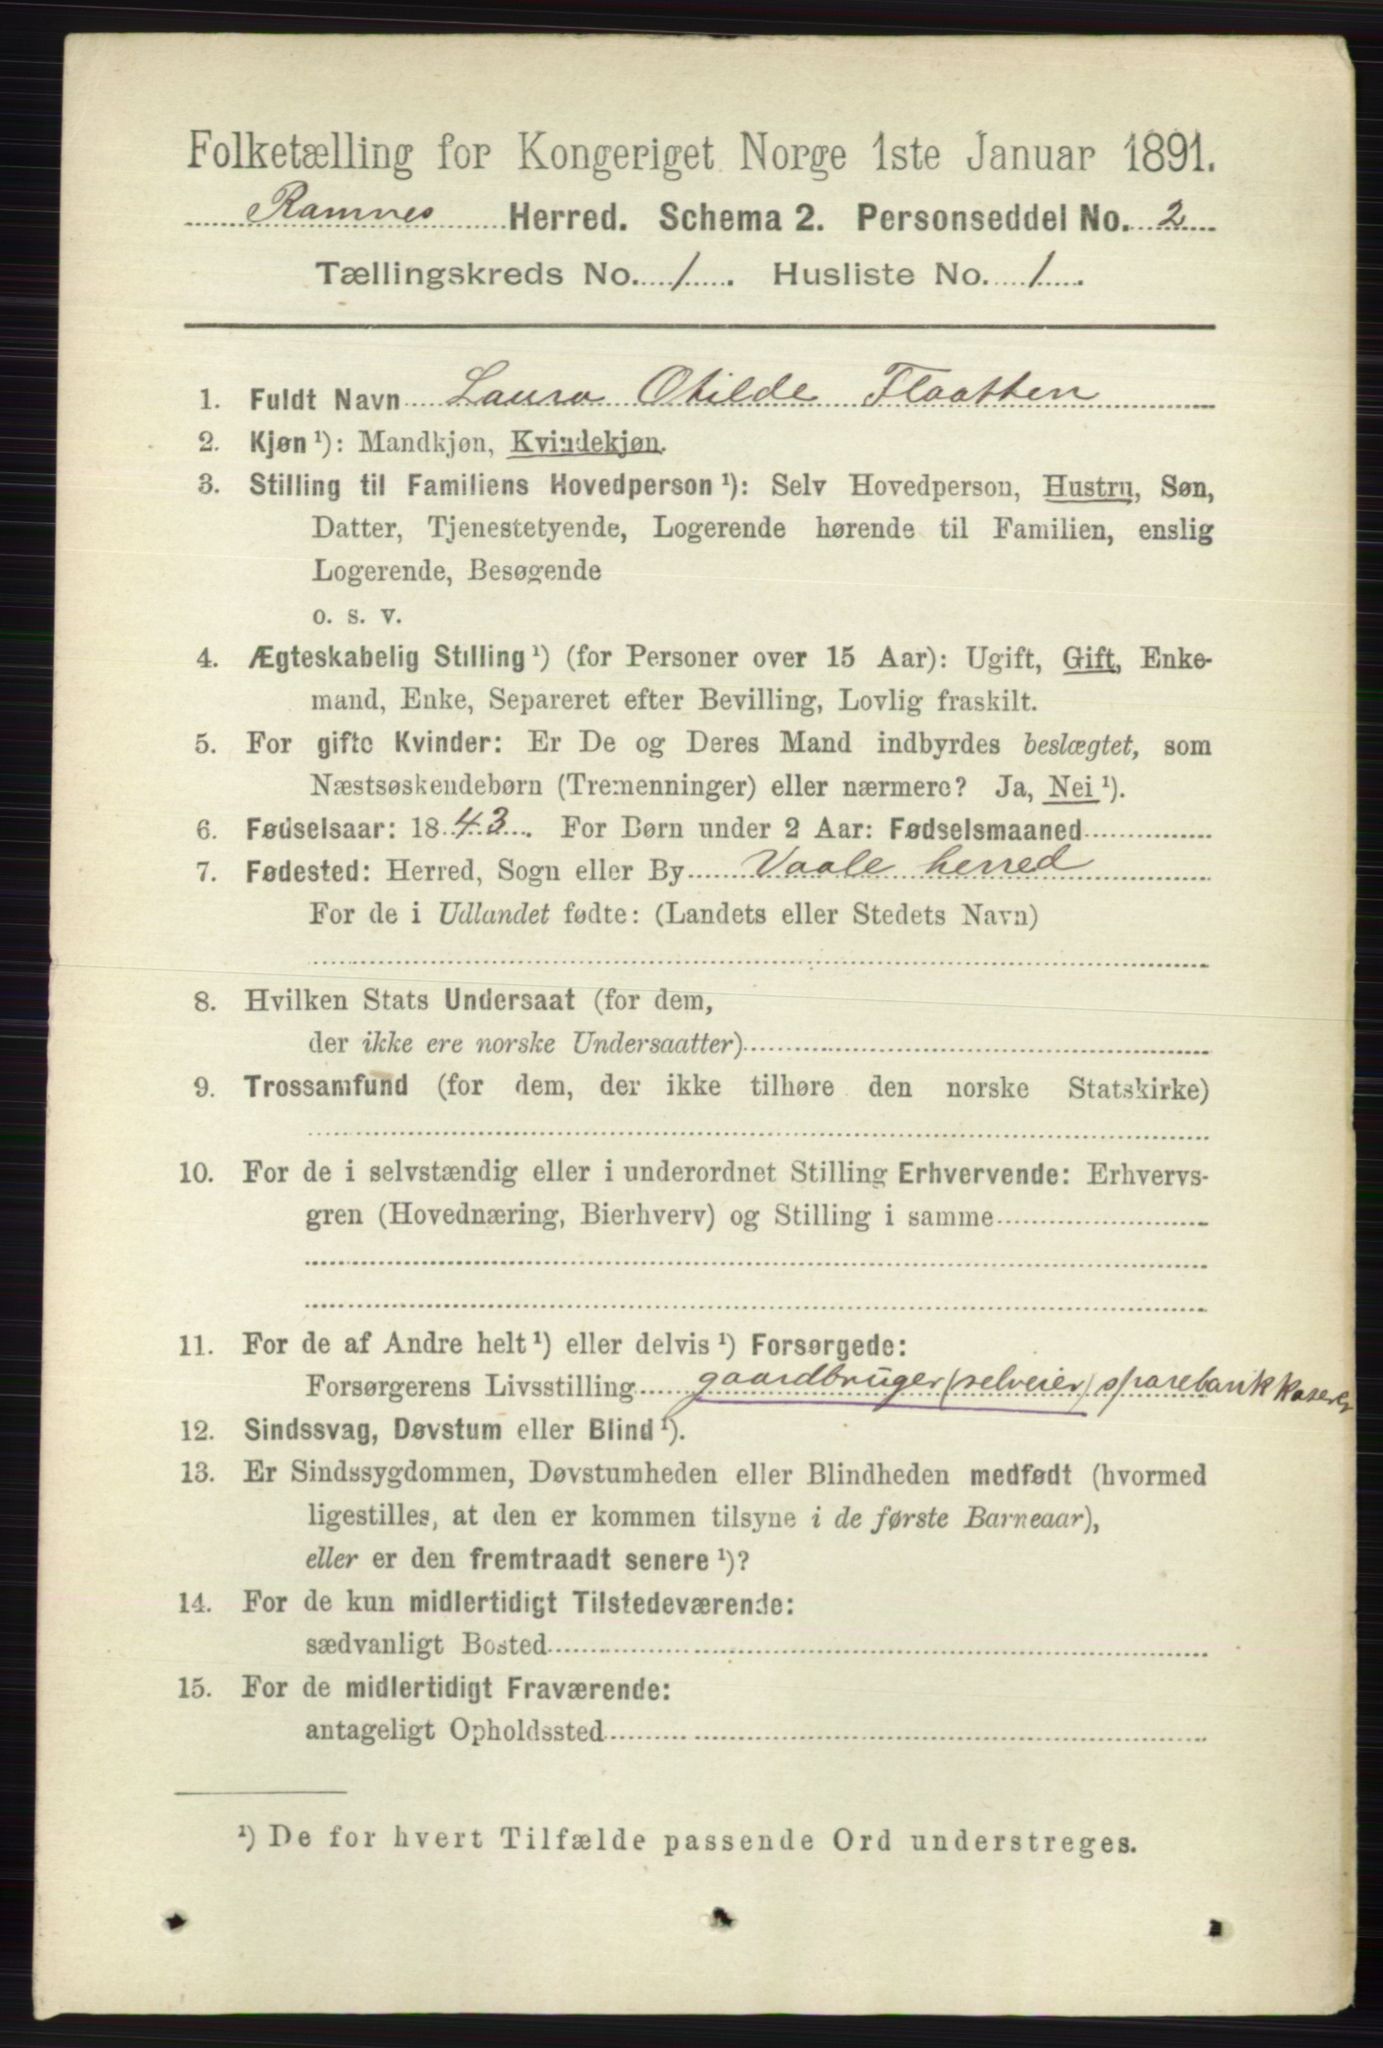 Folketælling for Kongeriget Norge 1ste Januar 1891.
Ramnes Herred. Schema 2. Personseddel No. 2
Tællingskreds No. 1. Husliste No. 1.
1. Fuldt Navn Laura Otilde Flaatten
2. Kjøn ¹): Mandkjøn, Kvindekjøn.
3. Stilling til Familiens Hovedperson ¹): Selv Hovedperson, Hustru, Søn,
Datter, Tjenestetyende, Logerende hørende til Familien, enslig
Logerende, Besøgende
o. s. v.
4. Ægteskabelig Stilling ¹) (for Personer over 15 Aar): Ugift, Gift, Enke-
mand, Enke, Separeret efter Bevilling, Lovlig fraskilt.
5. For gifte Kvinder: Er De og Deres Mand indbyrdes beslægtet, som
Næstsøskendebørn (Tremenninger) eller nærmere? Ja, Nei ¹).
6. Fødselsaar: 1843. For Børn under 2 Aar: Fødselsmaaned
7. Fødested: Herred, Sogn eller By Vaale herred
For de i Udlandet fødte: (Landets eller Stedets Navn)
8. Hvilken Stats Undersaat (for dem,
der ikke ere norske Undersaatter)
9. Trossamfund (for dem, der ikke tilhøre den norske Statskirke)
10. For de i selvstændig eller i underordnet Stilling Erhvervende: Erhvervs-
gren (Hovednæring, Bierhverv) og Stilling i samme
11. For de af Andre helt ¹) eller delvis ¹) Forsørgede:
Forsørgerens Livsstilling gaardbruger (selveier) sparebankkaserer
12. Sindssvag, Døvstum eller Blind ¹).
13. Er Sindssygdommen, Døvstumheden eller Blindheden medfødt (hvormed
ligestilles, at den er kommen tilsyne i de første Barneaar),
eller er den fremtraadt senere ¹)?
14. For de kun midlertidigt Tilstedeværende:
sædvanligt Bosted
15. For de midlertidigt Fraværende:
antageligt Opholdssted
¹) De for hvert Tilfælde passende Ord understreges.